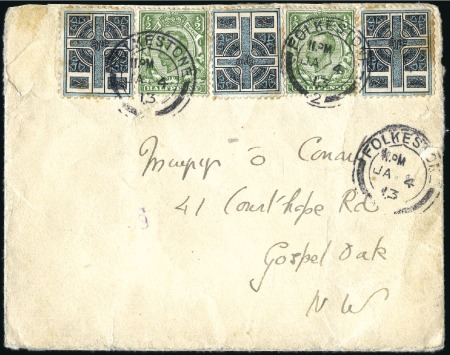 FOLKESTONE
11 PM
JA 4
13
HALFPENNY
FOLKESTONE
11 PM
JA 4
13
2
FOLKESTONE
11 PM
JA 4
13
ō Conaı
41 Courthope Rd
Gospel Oak
N W